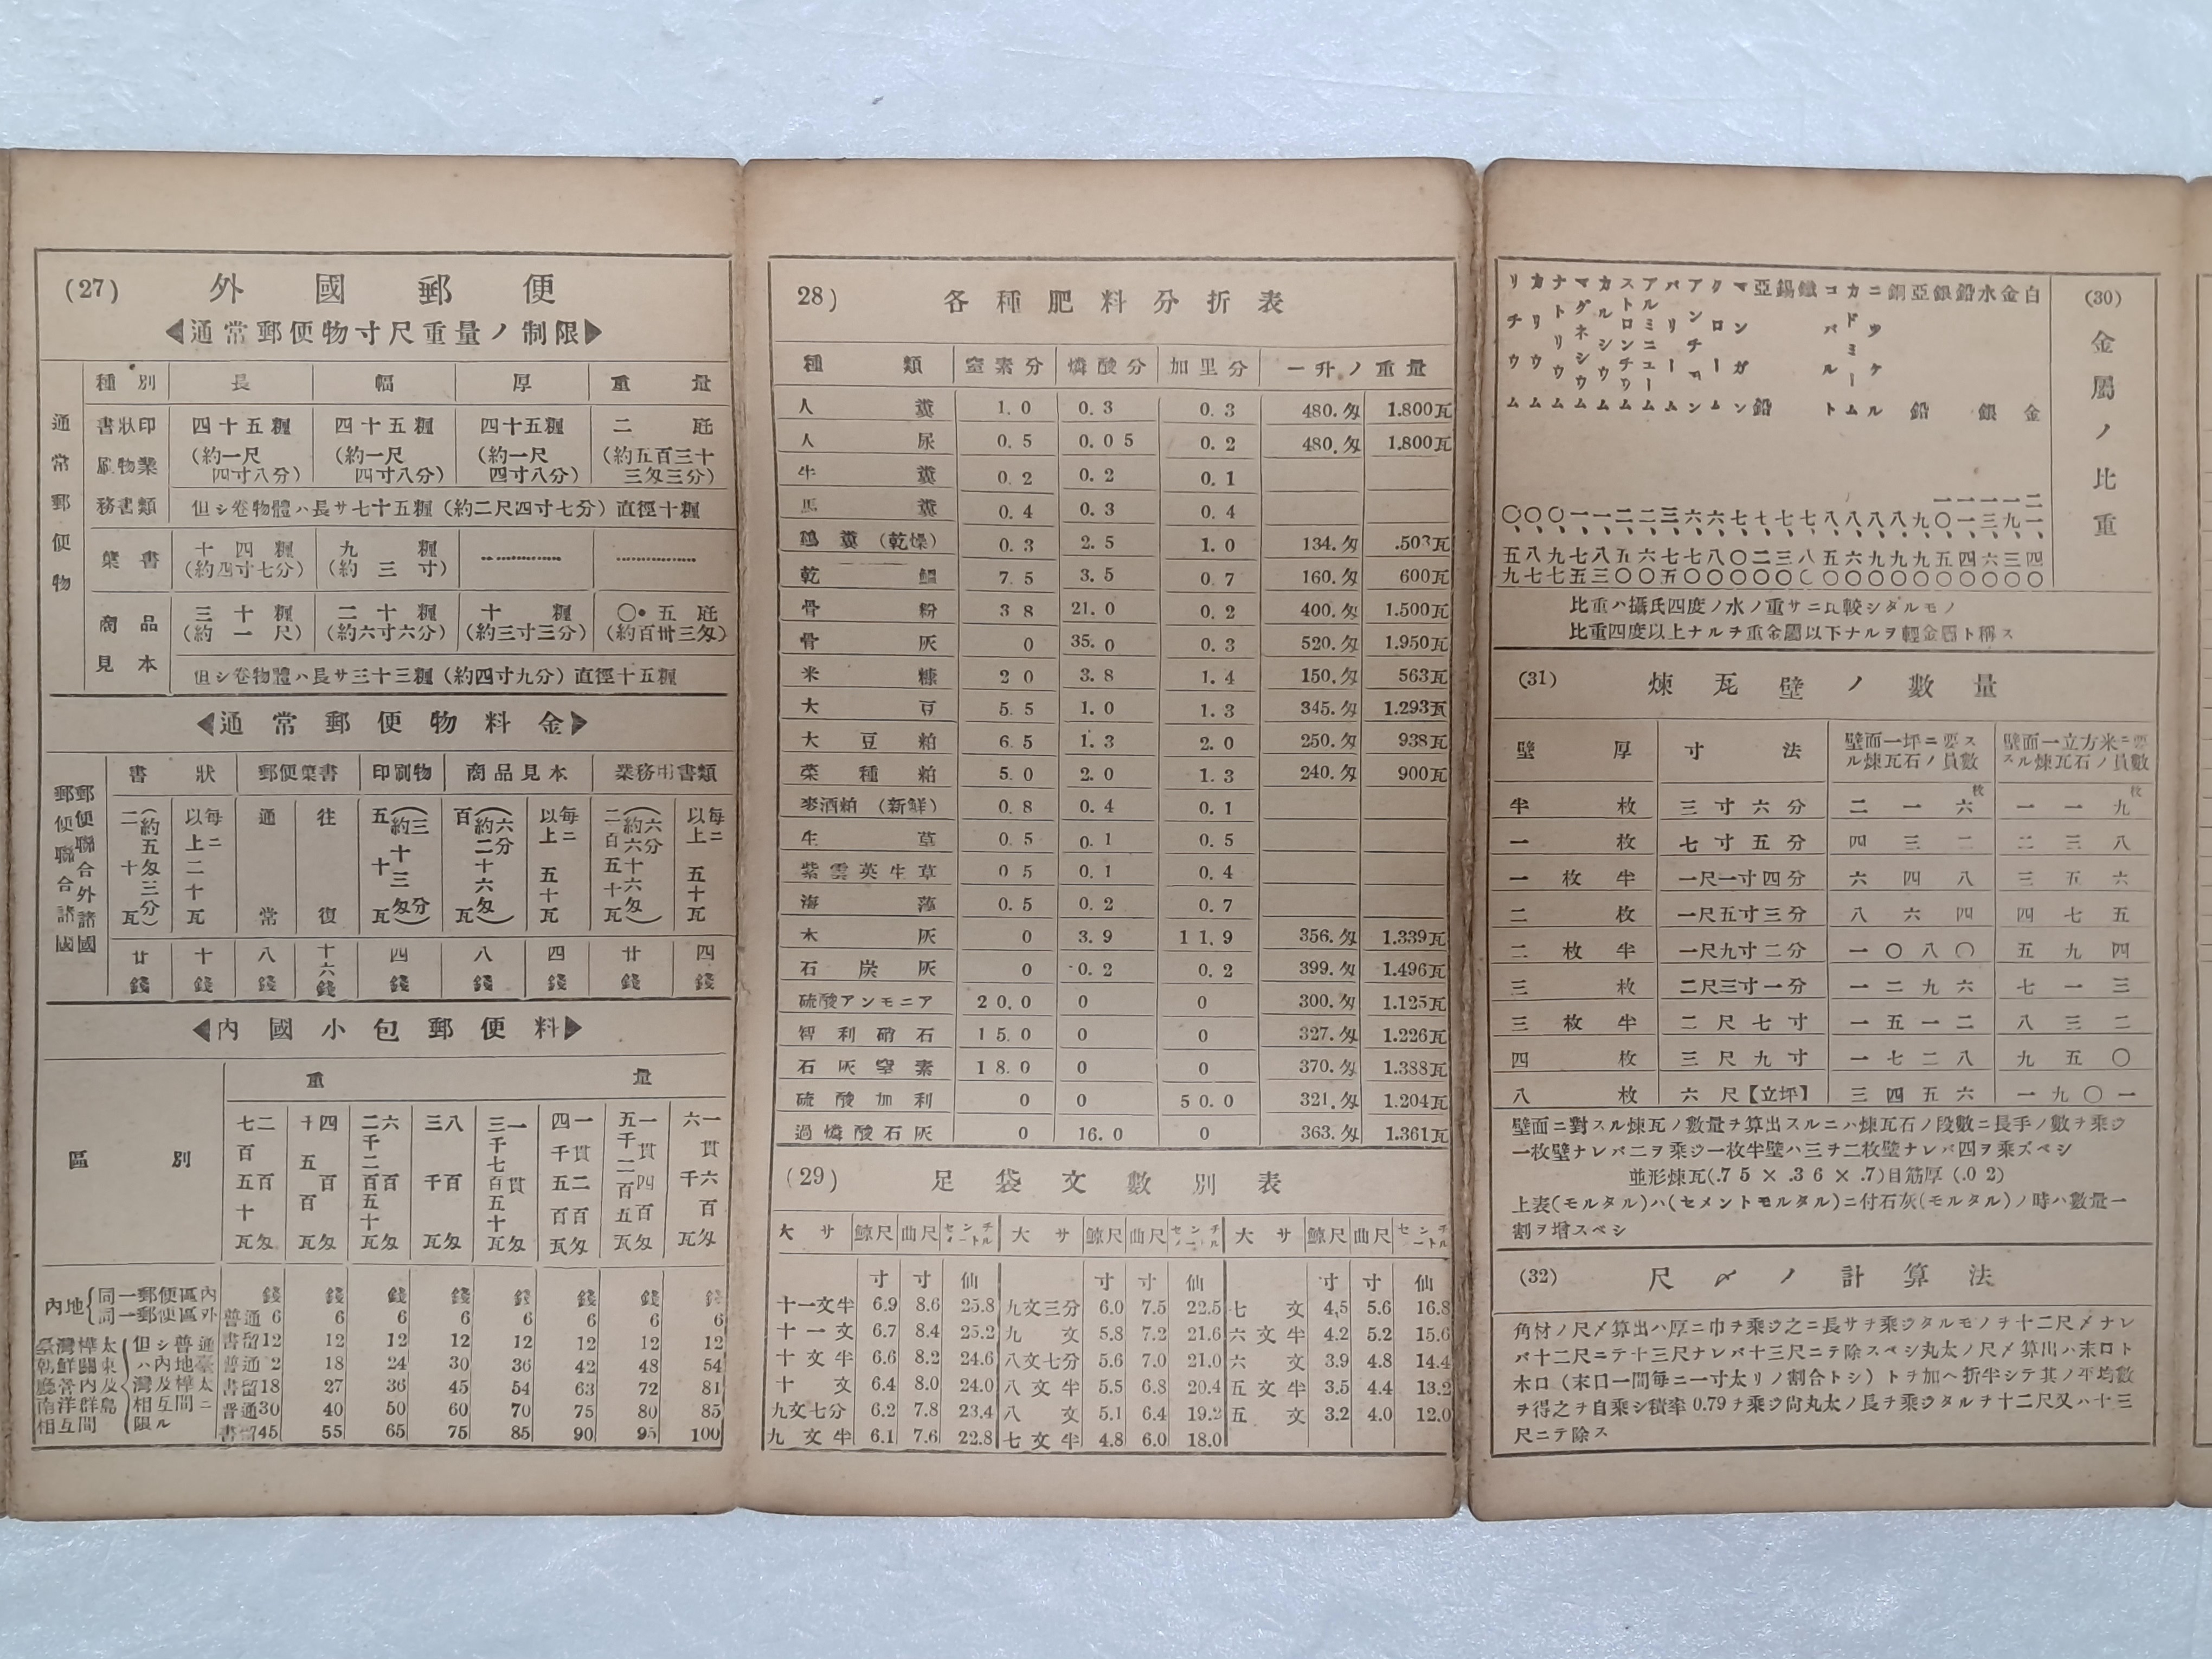 (27) 外國郵便
◀通常郵便物寸尺重量ノ制限▶
通常郵便物
種別 長 幅 厚 重量
書狀印刷物業務書類
四十五糎 四十五糎 四十五糎 二瓩
(約一尺四寸八分) (約一尺四寸八分) (約一尺四寸八分) (約五百三十三匁三分)
但シ卷物體ハ長サ七十五糎(約二尺四寸七分)直徑十糎
葉書 十四糎 九糎
(約四寸七分) (約三寸)
商品見本 三十糎 二十糎 十糎 〇・五瓩
(約一尺) (約六寸六分) (約三寸三分) (約百卅三匁)
但シ卷物體ハ長サ三十三糎(約四寸九分)直徑十五糎
◀通常郵便物料金▶
郵便聯合外諸國
郵便聯合諸國
書狀 郵便葉書 印刷物 商品見本 業務用書類
二十瓦(約五匁三分)
以上每ニ二十瓦
通常
往復
五十瓦(約十三匁三分)
百瓦(約二十六匁六分)
以上每ニ五十瓦
二百五十瓦(約六十六匁六分)
以上每ニ五十瓦
廿錢 十錢 八錢 十六錢 四錢 八錢 四錢 廿錢 四錢
◀內國小包郵便料▶
區別 重量
內地{同一郵便區內
同一郵便區外
錢 錢 錢 錢 錢 錢 錢 錢
普通 6 6 6 6 6 6 6 6
書留12 12 12 12 12 12 12 12
普通12 18 24 30 36 42 48 54
書留18 27 36 45 54 63 72 81
普通30 40 50 60 70 75 80 85
書留45 55 65 75 85 90 95 100
臺灣樺太
朝鮮關東
廳管內及
南洋群島
相互間
但シ普通
ハ內地臺
灣及樺太
相互間ニ
限ル
28) 各種肥料分折表
種類 窒素分 燐酸分 加里分 一升ノ重量
人糞 1.0 0.3 0.3 480.匁 1.800瓦
人尿 0.5 0.05 0.2 480.匁 1.800瓦
牛糞 0.2 0.2 0.1
馬糞 0.4 0.3 0.4
鷄糞(乾燥) 0.3 2.5 1.0 134.匁 .503瓦
乾鰮 7.5 3.5 0.7 160.匁 600瓦
骨粉 3 8 21.0 0.2 400.匁 1.500瓦
骨灰 0 35.0 0.3 520.匁 1.950瓦
米糠 2 0 3.8 1.4 150.匁 563瓦
大豆 5.5 1.0 1.3 345.匁 1.293瓦
大豆粕 6.5 1.3 2.0 250.匁 938瓦
菜種粕 5.0 2.0 1.3 240.匁 900瓦
麥酒粕(新鮮) 0.8 0.4 0.1
生草 0.5 0.1 0.5
紫雲英生草 0 5 0.1 0.4
海藻 0.5 0.2 0.7
木灰 0 3.9 11.9 356.匁 1.339瓦
石炭灰 0 0.2 0.2 399.匁 1.496瓦
硫酸アンモニア 20.0 0 0 300.匁 1.125瓦
智利硝石 15.0 0 0 327.匁 1.226瓦
石灰窒素 18.0 0 0 370.匁 1.388瓦
硫酸加利 0 0 50.0 321.匁 1.204瓦
過燐酸石灰 0 16.0 0 363.匁 1.361瓦
(29) 足袋文數別表
大サ 鯨尺 曲尺 センチメートル 大サ 鯨尺 曲尺 センチメートル 大サ 鯨尺 曲尺 センチメートル
寸 寸 仙 寸 寸 仙 寸 寸 仙
十一文半 6.9 8.6 25.8 九文三分 6.0 7.5 22.5 七文 4.5 5.6 16.8
十一文 6.7 8.4 25.2 九文 5.8 7.2 21.6 六文半 4.2 5.2 15.6
十文半 6.6 8.2 24.6 八文七分 5.6 7.0 21.0 六文 3.9 4.8 14.4
十文 6.4 8.0 24.0 八文半 5.5 6.8 20.4 五文半 3.5 4.4 13.2
九文七分 6.2 7.8 23.4 八文 5.1 6.4 19.2 五文 3.2 4.0 12.0
九文半 6.1 7.6 22.8 七文半 4.8 6.0 18.0
(30) 金屬ノ比重
白金 二一、四〇
金 一九、三〇
水銀 一三、六〇
鉛 一一、四〇
銀 一〇、五〇
亞鉛 九、九〇
銅 八、九〇
ニツケル 八、九〇
カドミーム 八、六〇
コバルト 八、五〇
鐵 七、八〇
錫 七、三〇
亞鉛 七、二〇
マンガン 七、〇〇
クローム 六、八〇
アンチモン 六、七〇
バリーム 三、七五
アルミニユーム 二、六〇
ストロンチウム 二、五〇
カルシウム 一、八三
マグネシウム 一、七五
ナトリウム 〇、九七
カリウム 〇、八七
リチウム 〇、五九
比重ハ攝氏四度ノ水ノ重サニ比較シタルモノ
比重四度以上ナルヲ重金屬以下ナルヲ輕金屬ト稱ス
(31) 煉瓦壁ノ數量
壁厚 寸法 壁面一坪ニ要スル煉瓦石ノ員數 壁面一立方米ニ要スル煉瓦石ノ員數
半枚 三寸六分 二一六枚 一一九枚
一枚 七寸五分 四三二 二三八
一枚半 一尺一寸四分 六四八 三五六
二枚 一尺五寸三分 八六四 四七五
二枚半 一尺九寸二分 一〇八〇 五九四
三枚 二尺三寸一分 一二九六 七一三
三枚半 二尺七寸 一五一二 八三二
四枚 三尺九寸 一七二八 九五〇
八枚 六尺【立坪】 三四五六 一九〇一
壁面ニ對スル煉瓦ノ數量ヲ算出スルニハ煉瓦石ノ段數ニ長手ノ數ヲ乘ジ
一枚壁ナレバ二ヲ乘ジ一枚半壁ハ三ヲ二枚壁ナレバ四ヲ乘ズベシ
並形煉瓦(.75 × .36 × .7)目筋厚(.02)
上表(モルタル)ハ(セメントモルタル)ニ付石灰(モルタル)ノ時ハ數量一
割ヲ增スベシ
(32) 尺〆ノ計算法
角材ノ尺〆算出ハ厚ニ巾ヲ乘ジ之ニ長サヲ乘ジタルモノヲ十二尺〆ナレ
バ十二尺ニテ十三尺ナレバ十三尺ニテ除スベシ丸太ノ尺〆算出ハ末口ト
木口(末口一間每ニ一寸太リノ割合トシ)トヲ加ヘ折半シテ其ノ平均數
ヲ得之ヲ自乘シ積率0.79ヲ乘ジ尙丸太ノ長ヲ乘ジタルヲ十二尺又ハ十三
尺ニテ除ス